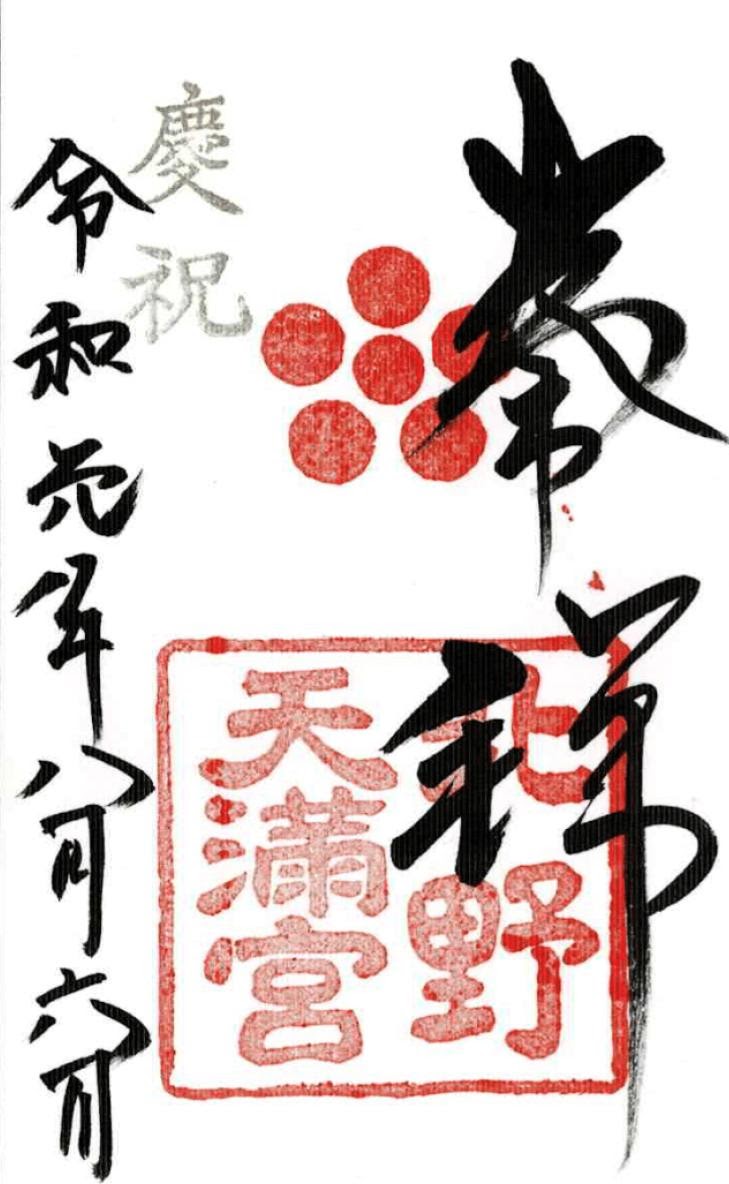 奉拝
北野
天満宮
慶祝
令和元年八月六日